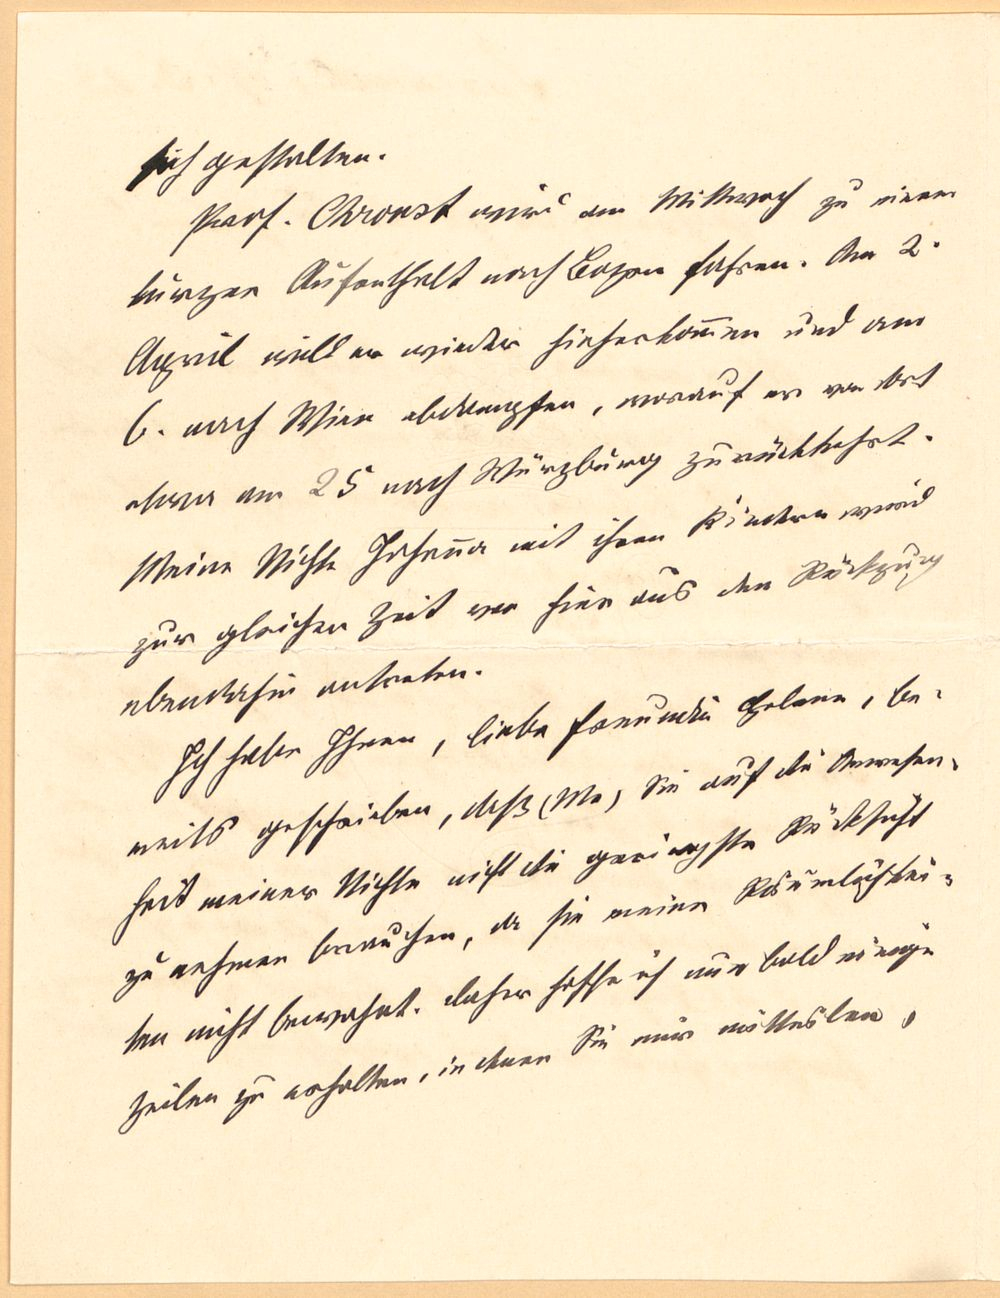 sich gestalten.
Prof. Chroust wird am Mittwoch zu einem
kurzen Aufenthalt nach Bozen fahren. Am 2.
April will er wieder hieherkom̅en und am
6. nach Wien abdampfen, worauf er von dort
etwa am 25 nach Würzburg zurückkehrt.
Meine Nichte Johan̅a mit ihren Kindern wird
zur gleichen Zeit von hier aus den Rückzug
ebendahin antreten.
Ich habe Ihnen, liebe Freundin Helene, be-
reits geschrieben, daß Sie auf die Anwesen-
heit meiner Nichte nicht die geringste Rücksicht
zu nehmen brauchen, da sie meine Räumlichkei-
ten nicht bewohnt. Daher hoffe ich nun bald einige
Zeilen zu erhalten, in denen Sie mir mitteilen,